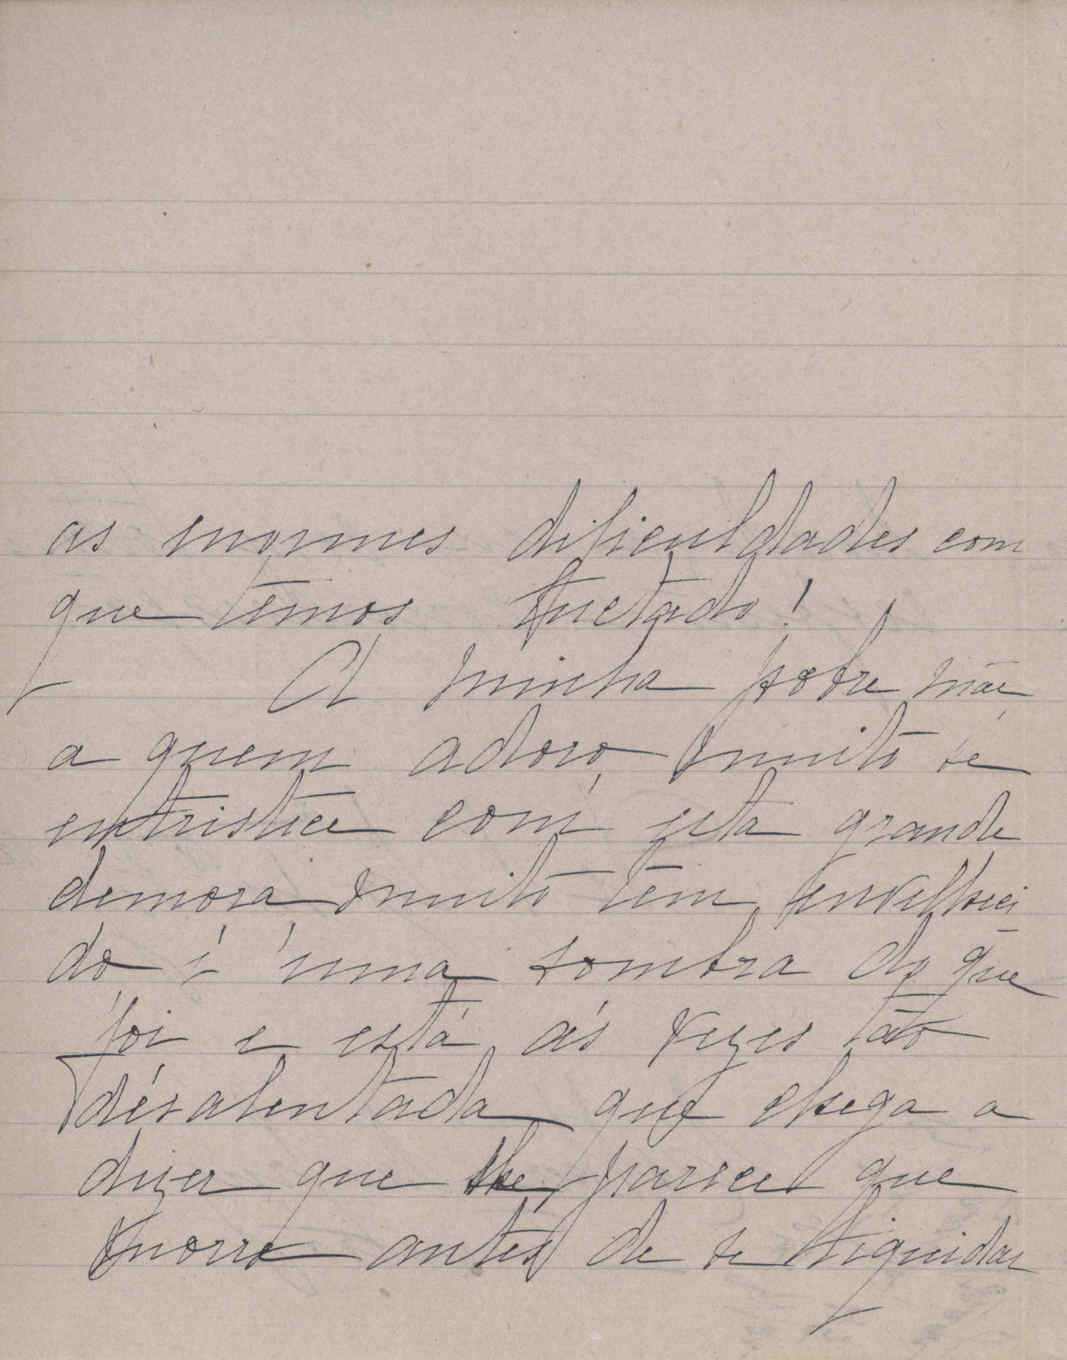 as enormes dificuldades com
que temos luctado!
A minha pobre mãe,
a quem adoro, muito se
entristece com esta grande
demora muito tem envelheci
do é uma sombra do que
foi e está ás vezes tão
desalentada que chega a
dizer que lhe parece que
morre antes de se liquidar